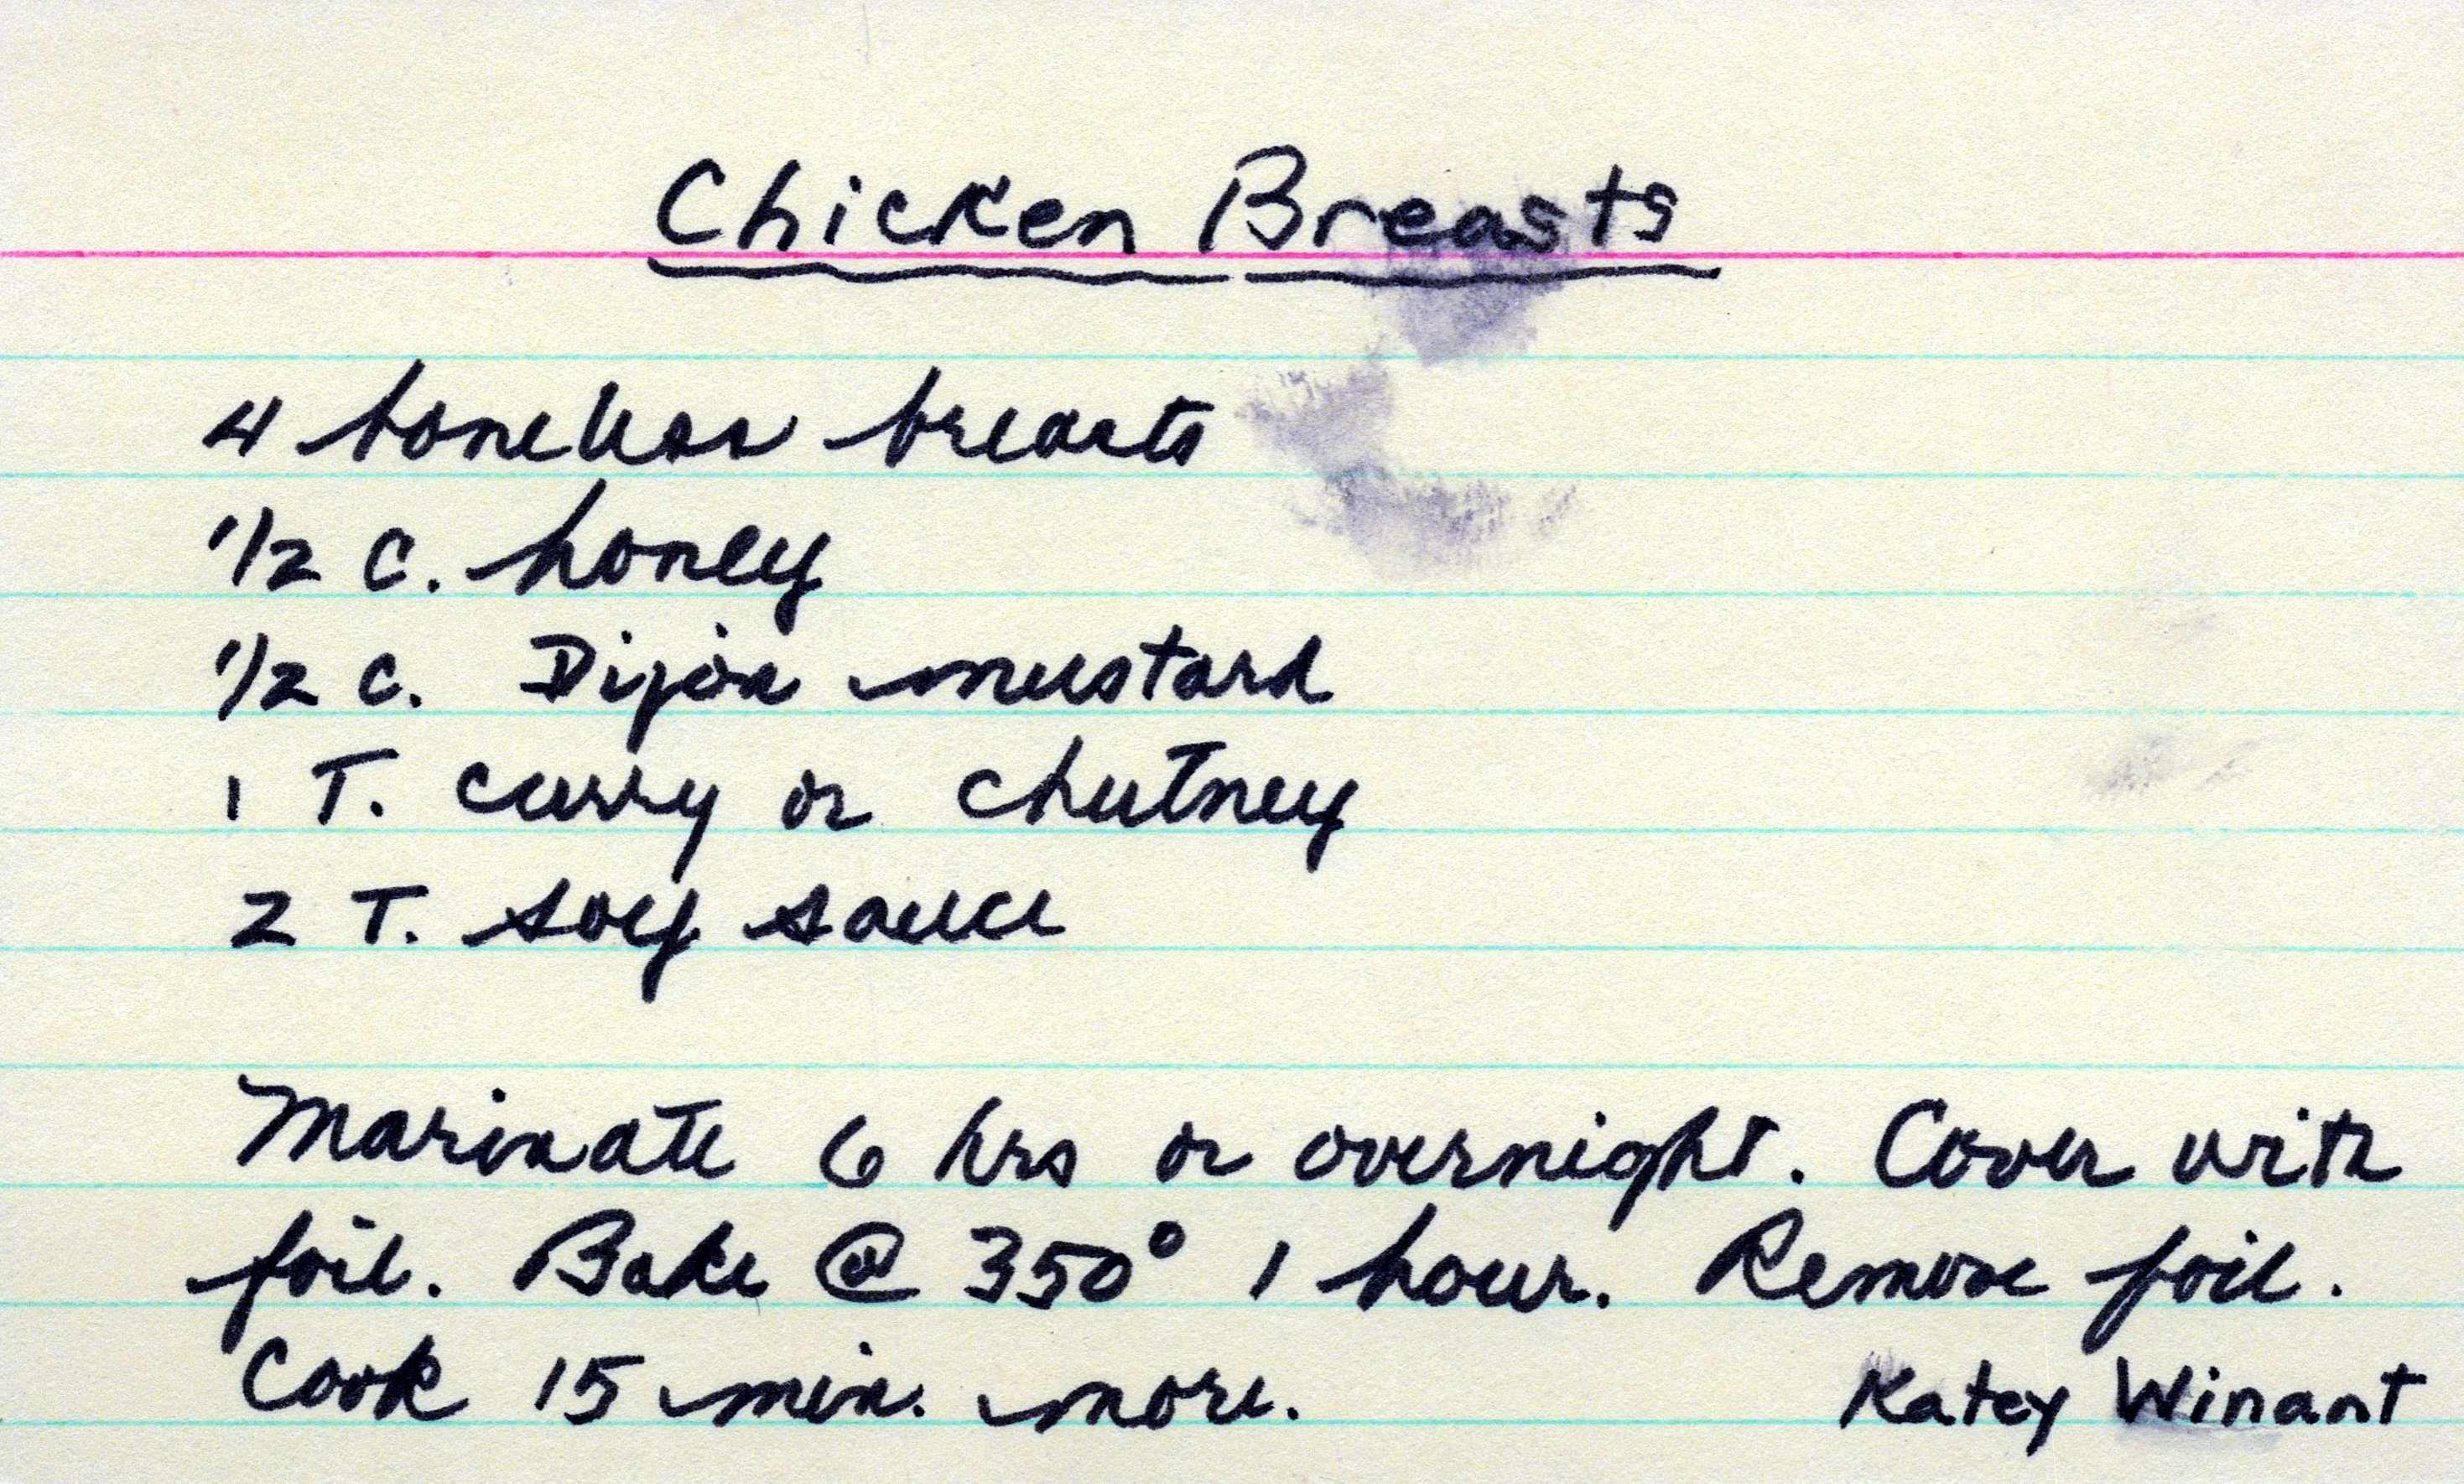 Chicken Breasts
4 boneless breasts
1/2 c. honey
1/2 c. Dijon mustard
1 T. curry or chutney
2 T. soy sauce
Marinate 6 hrs or overnight. Cover with
foil. Bake @ 350° 1 hour. Remove foil.
Cook 15 min. more.
Katey Winant